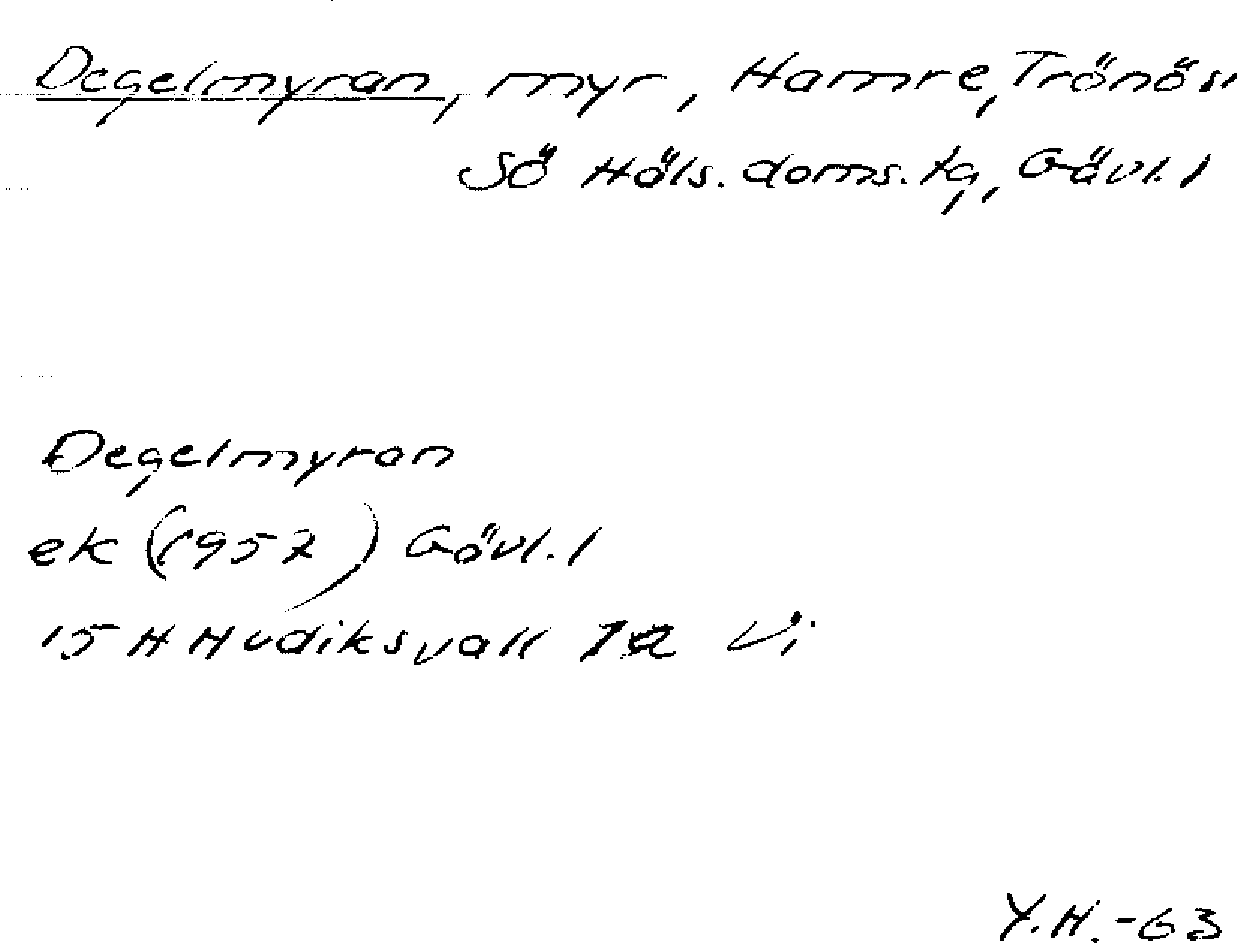 Degelmyran, myr, Hamre, Trönö sn
Sö Häls. doms. tg, Gävl. l
Degelmyran
ek (1957) Gävl. l
15 H Hudiksvall Vi
Y.H. -63